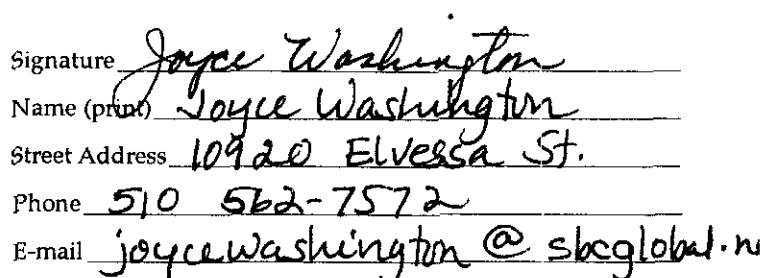 Signature Joyce Washington
Name (print) Joyce Washington
Street Address 10920 Elvessa St.
Phone 510 562-7572
E-mail joycewashington @ sbcglobal.n